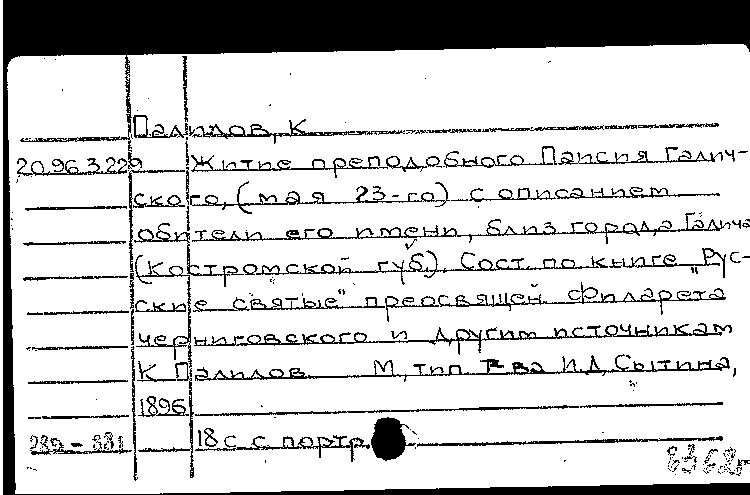 Палилов, К
20.96.3.229 Житие преподобного Паисия Галич-
ского, (мая 23-го) с описанием
обители его имени, близ города Галича
(Костромской губ.). Сост. по книге "Рус-
ские святые" преосвящен Филарета
черниговского и другим источникам
К Палилов М, тип Т-ва И.Д. Сытина,
1896
18 с с портр.